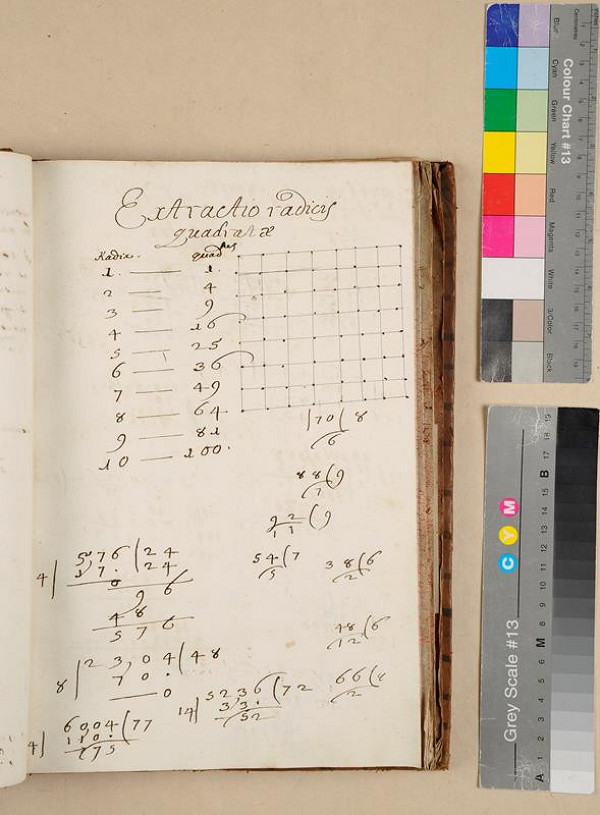 Extractio radicis
quadratæ
Radix. quadres
1. — 1.
2 — 4
3 — 9
4 — 16
5 — 25
6 — 36
7 — 49
8 — 64
9 — 81
10 — 100.
|70(8
6
88(9
7
92(9
11
54(7
5
38(6
2
48(6
12
66(8
2
576(24
4| 17. 24
0 96
48
576
8|23,04(48
70.
0
14|5236(72
33.
52
4|6004(77
110.
75
Colour Chart #13
Blue
Cyan
Green
Yellow
Red
Magenta
White
3/Color
Black
Centimetres
Grey Scale #13
C Y M
A 1 2 3 4 5 6 M 8 9 10 11 12 13 14 15 B 17 18 19